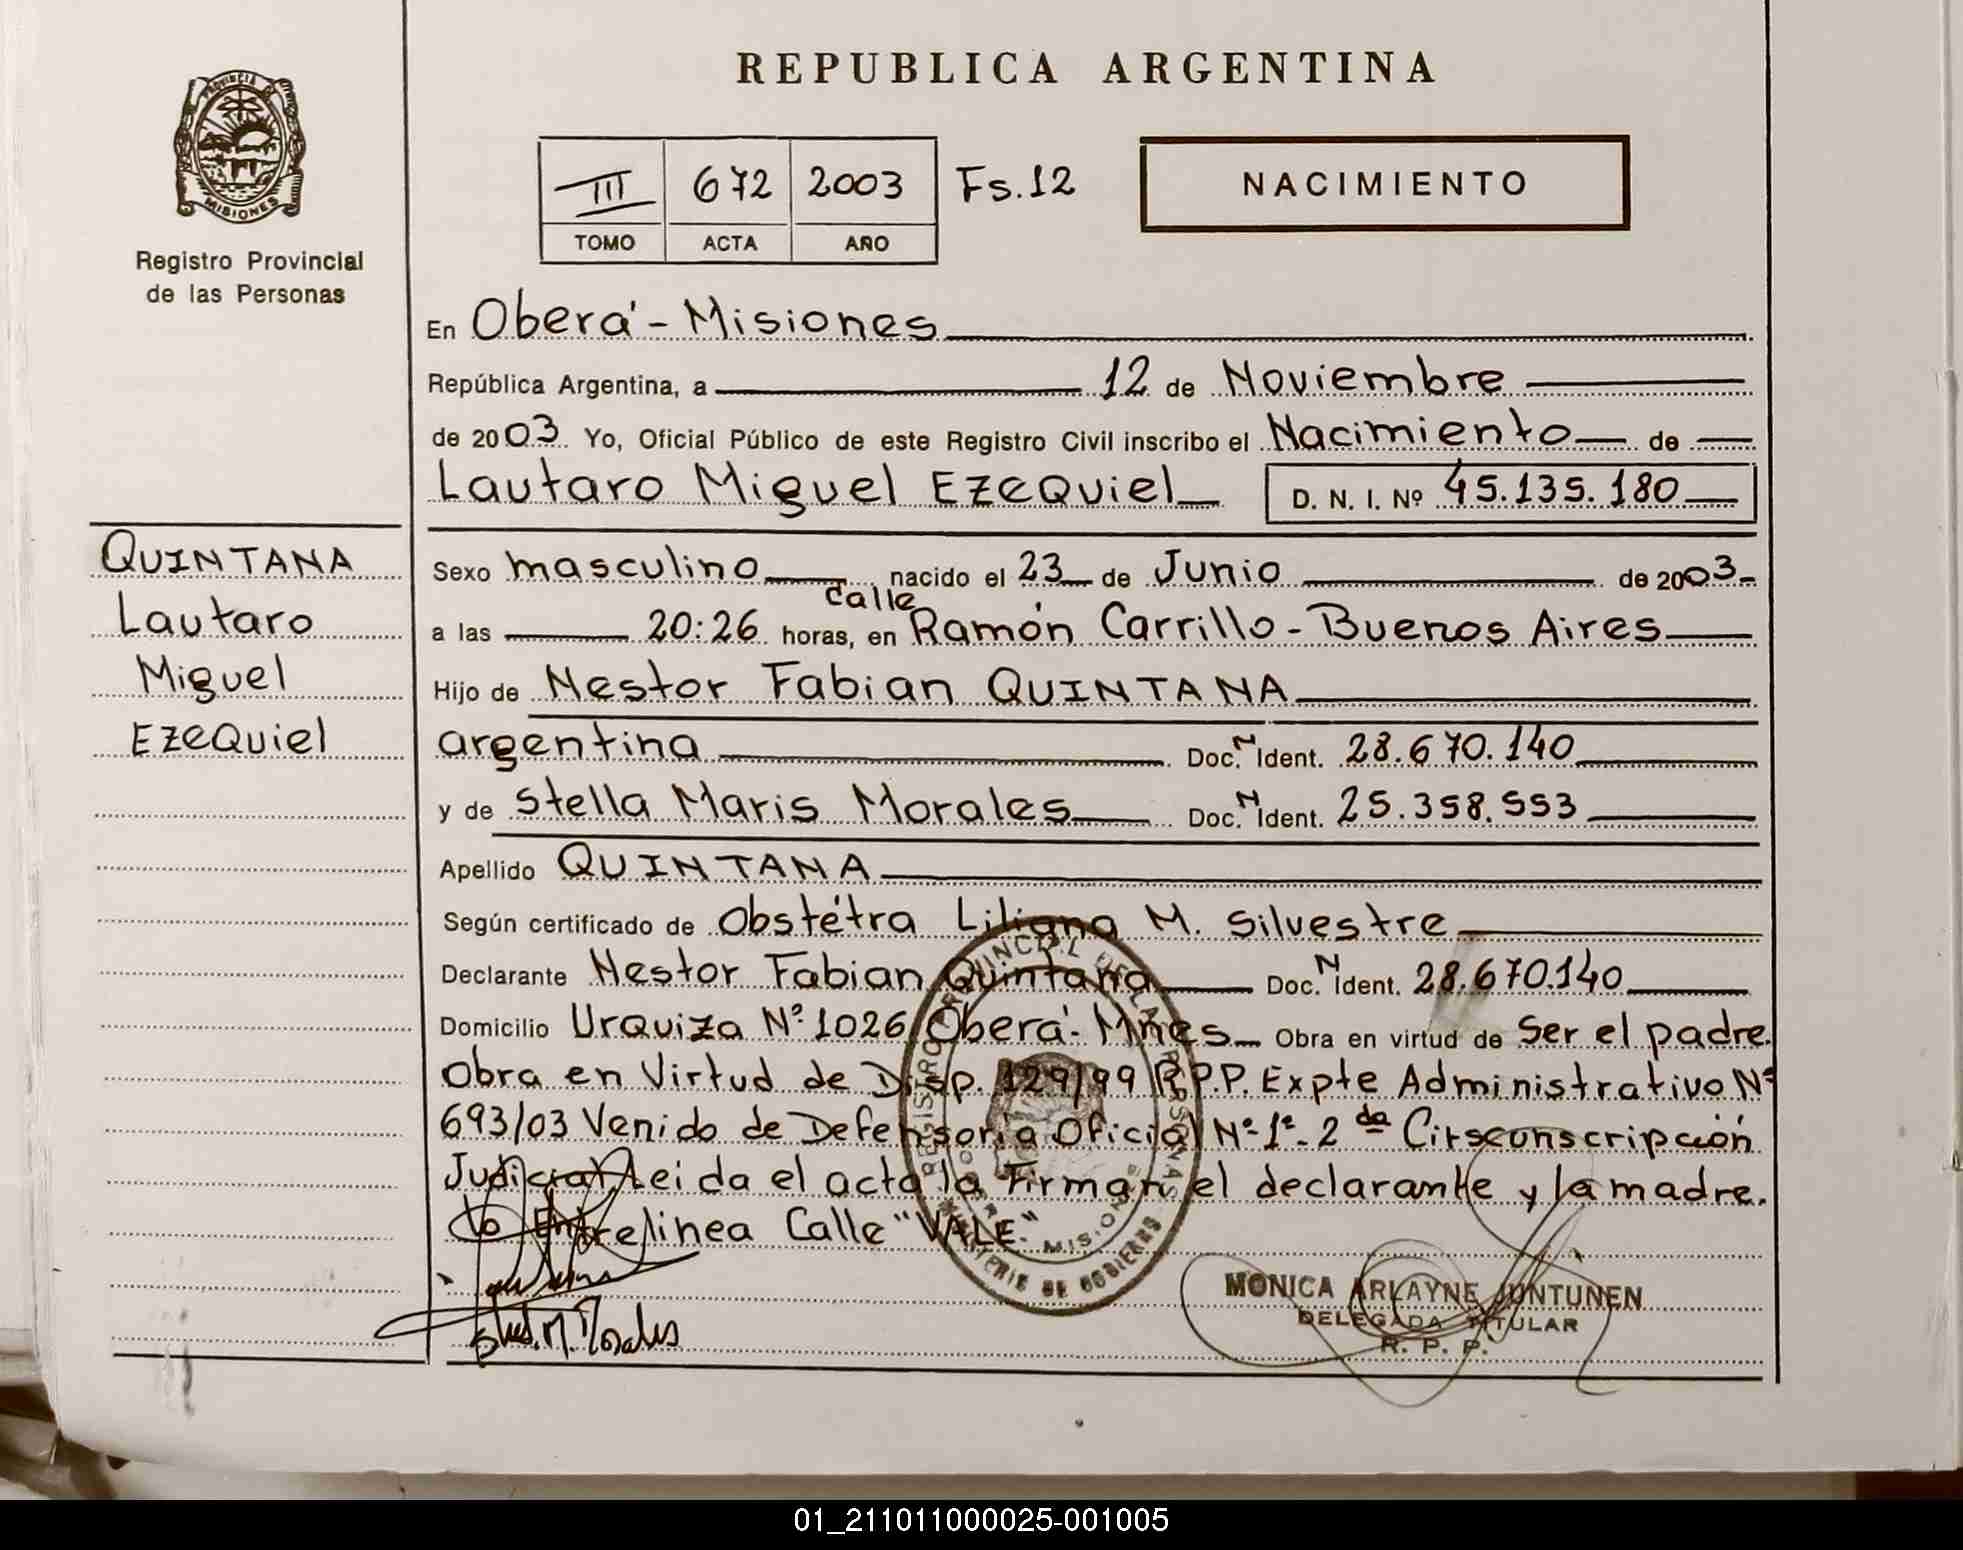 REPUBLICA ARGENTINA
PROVINCIA DE
MISIONES
Registro Provincial
de las Personas
III 672 2003 Fs.12
TOMO ACTA AÑO
NACIMIENTO
En Oberá - Misiones
República Argentina, a 12 de Noviembre
de 2003 Yo, Oficial Público de este Registro Civil inscribo el Nacimiento de
Lautaro Miguel EzeQuiel D. N. I. Nº 45.135.180
QUINTANA
Lautaro
Miguel
EzeQuiel
Sexo masculino nacido el 23 de Junio de 2003
Calle
a las 20:26 horas, en Ramón Carrillo - Buenos Aires
Hijo de Nestor Fabian QUINTANA
argentina Doc. N Ident. 28.670.140
y de Stella Maris Morales Doc. N Ident. 25.358.553
Apellido QUINTANA
Según certificado de Obstétra Liliana M. Silvestre
Declarante Nestor Fabian Quintana Doc. N Ident. 28.670.140
Domicilio Urquiza Nº 1026 Oberá - Mnes Obra en virtud de Ser el padre.
Obra en Virtud de Disp. 129/99 R.P.P. Expte Administrativo Nº
693/03 Venido de Defensoria Oficial Nº 1º - 2 da Cirsconscripción
Judicial Leida el acta la Firman el declarante y la madre.
Entrelinea Calle "VALE"
M. Morales
REGISTRO PROVINCIAL DE LAS PERSONAS
MISIONES
MINISTERIO DE GOBIERNO
MONICA ARLAYNE JUNTUNEN
DELEGADA TITULAR
R. P. P.
01_211011000025-001005